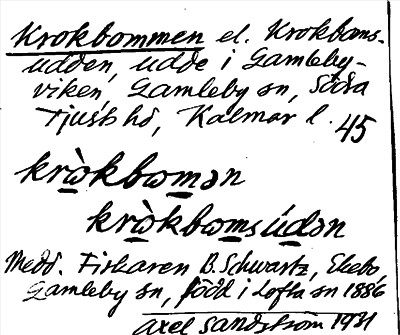 Krokbommen el. Krokboms-
udden, udde i Gamleby-
viken, Gamleby sn, Södra
Tjusts hd, Kalmar l. 45
krò̱kbɷm̱ən
krò̱kbɷm̱súdən
Medd. Fiskaren B. Schwartz, Ekebo,
Gamleby sn, född i Lofta sn 1886
Axel Sandström 1931